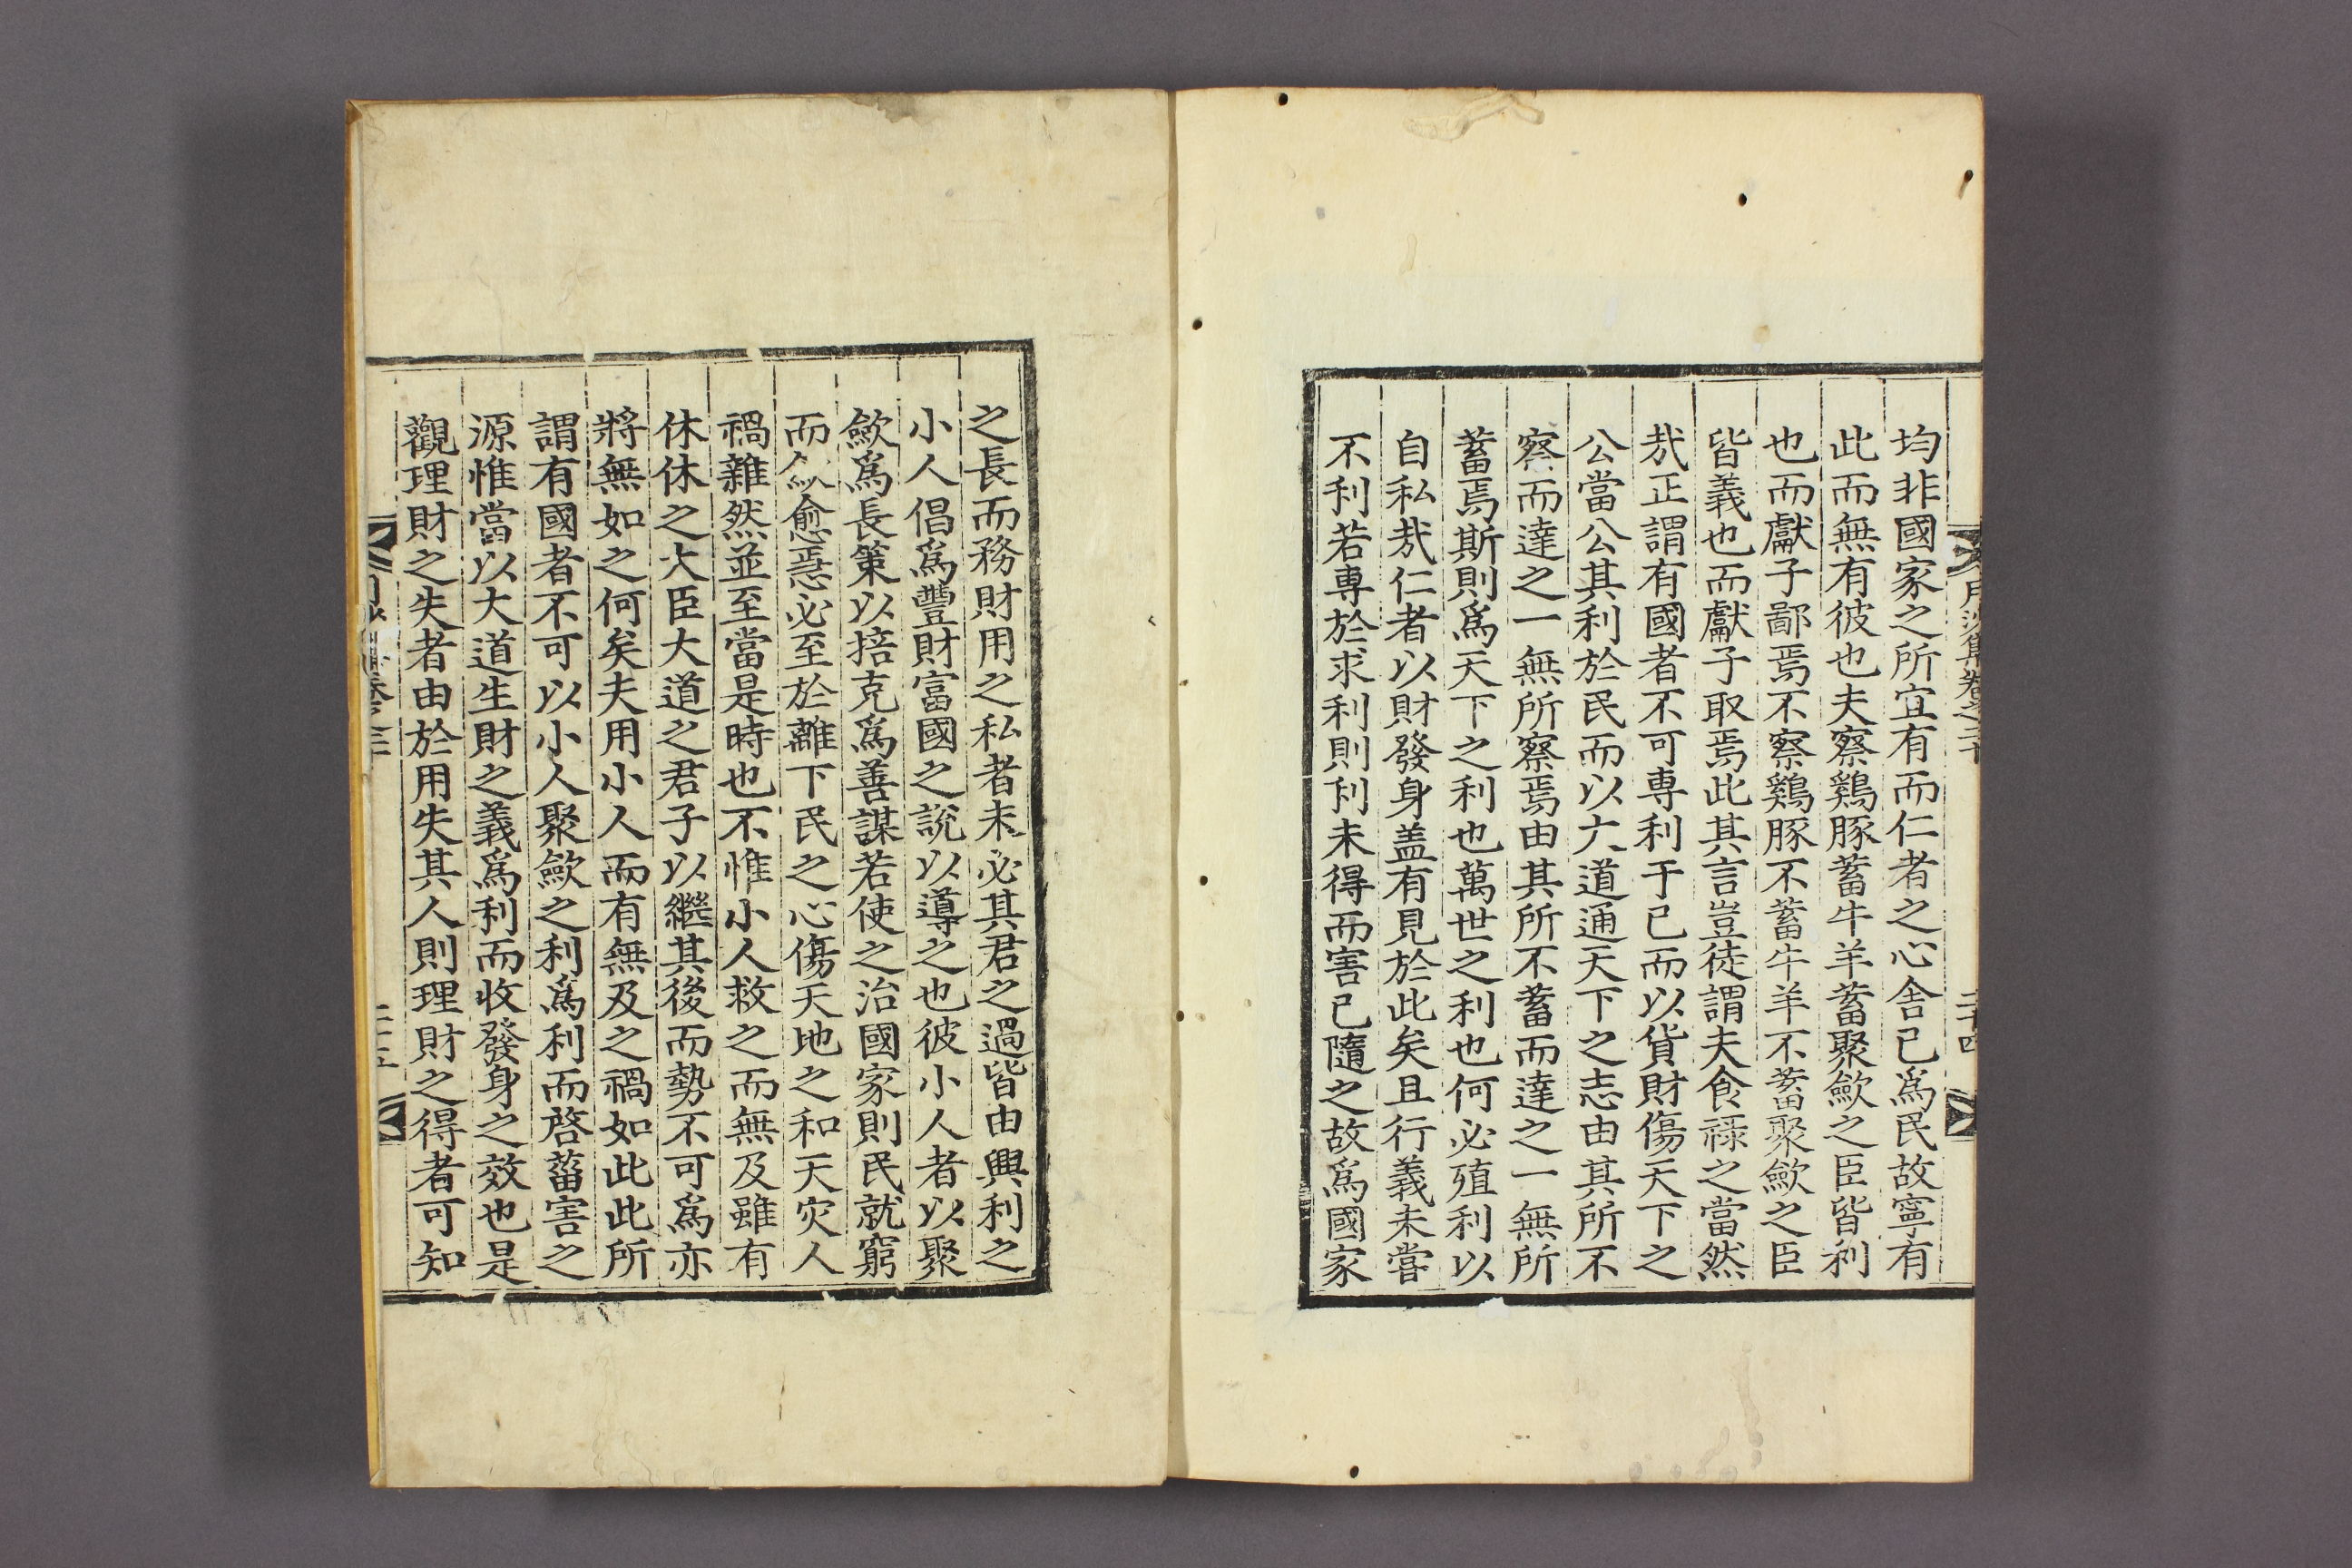 均非國家之所宜有而仁者之心舍己爲民故寧有
此而無有彼也夫察鷄豚蓄牛羊蓄聚歛之臣皆利
也而獻子鄙焉不察鷄豚不蓄牛羊不蓄聚歛之臣
皆義也而獻子取焉此其言豈徒謂夫食祿之當然
㦲正謂有國者不可專利于己而以貨財傷天下之
公當公其利於民而以大道通天下之志由其所不
察而達之一無所察焉由其所不蓄而達之一無所
蓄焉斯則爲天下之利也萬世之利也何必殖利以
自私㦲仁者以財發身盖有見於此矣且行義未嘗
不利若專於求利則利未得而害已隨之故爲國家
之長而務財用之私者未必其君之過皆由興利之
小人倡爲豐財富國之說以導之也彼小人者以聚
歛爲長策以掊克爲善謀若使之治國家則民就窮
而愈惡必至於離下民之心傷天地之和天灾人
禍雜然並至當是時也不惟小人救之而無及雖有
休休之大臣大道之君子以繼其後而勢不可爲亦
將無如之何矣夫用小人而有無及之禍如此此所
謂有國者不可以小人聚歛之利爲利而啓菑害之
源惟當以大道生財之義爲利而收發身之效也是
觀理財之失者由於用失其人則理財之得者可知